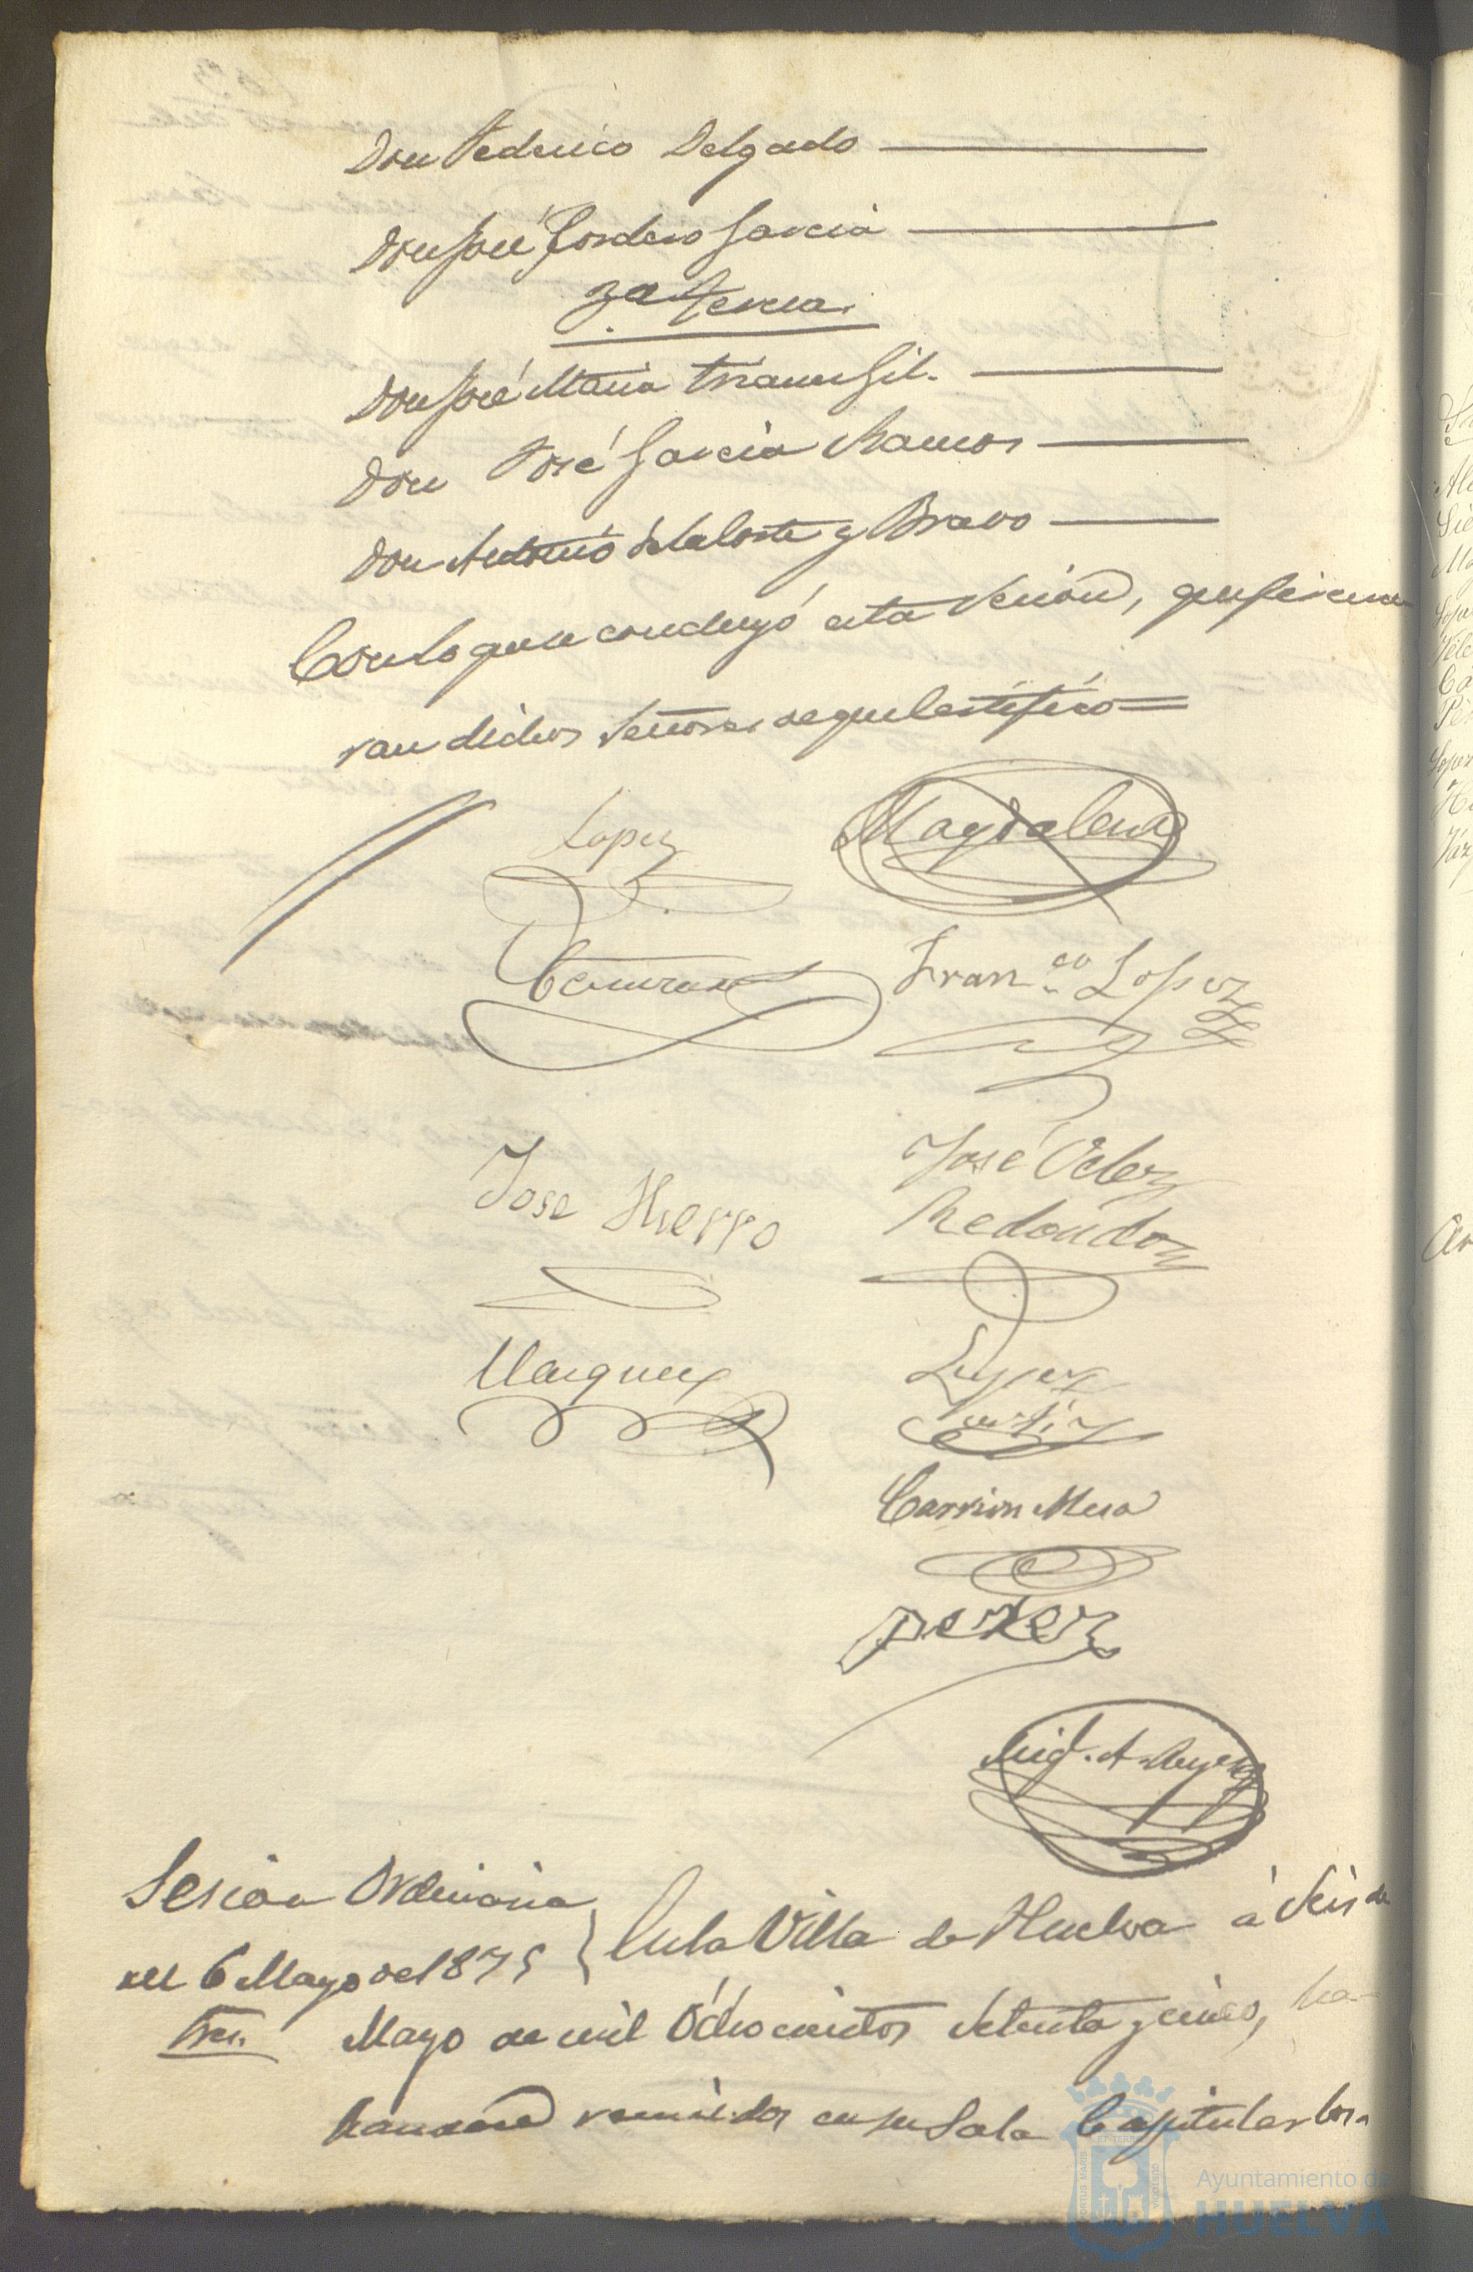 Don Federico Delgado
Don José Cordero Garcia
3ª Terna.
Don José Maria Gil.
Don José Garcia Ramos
Don Antonio de la Corte y Bravo
Con lo que se concluyó esta sesion, que firma
ran dichos Señores de que Certifico =
Lopez
Magdalena
Fran.co Lopez
Jose Hierro
José Velez
Redondo
Vazquez
Lopez
Ortiz
Carrion Mesa
perez
Mig.l A.
Sesion Ordinaria
del 6 Mayo de 1875
En la Villa de Huelva á Seis de
Mayo de mil Ochocientos Setenta y cinco, ha-
reunidos en su Sala Capitular los
Ayuntamiento de
HUELVA